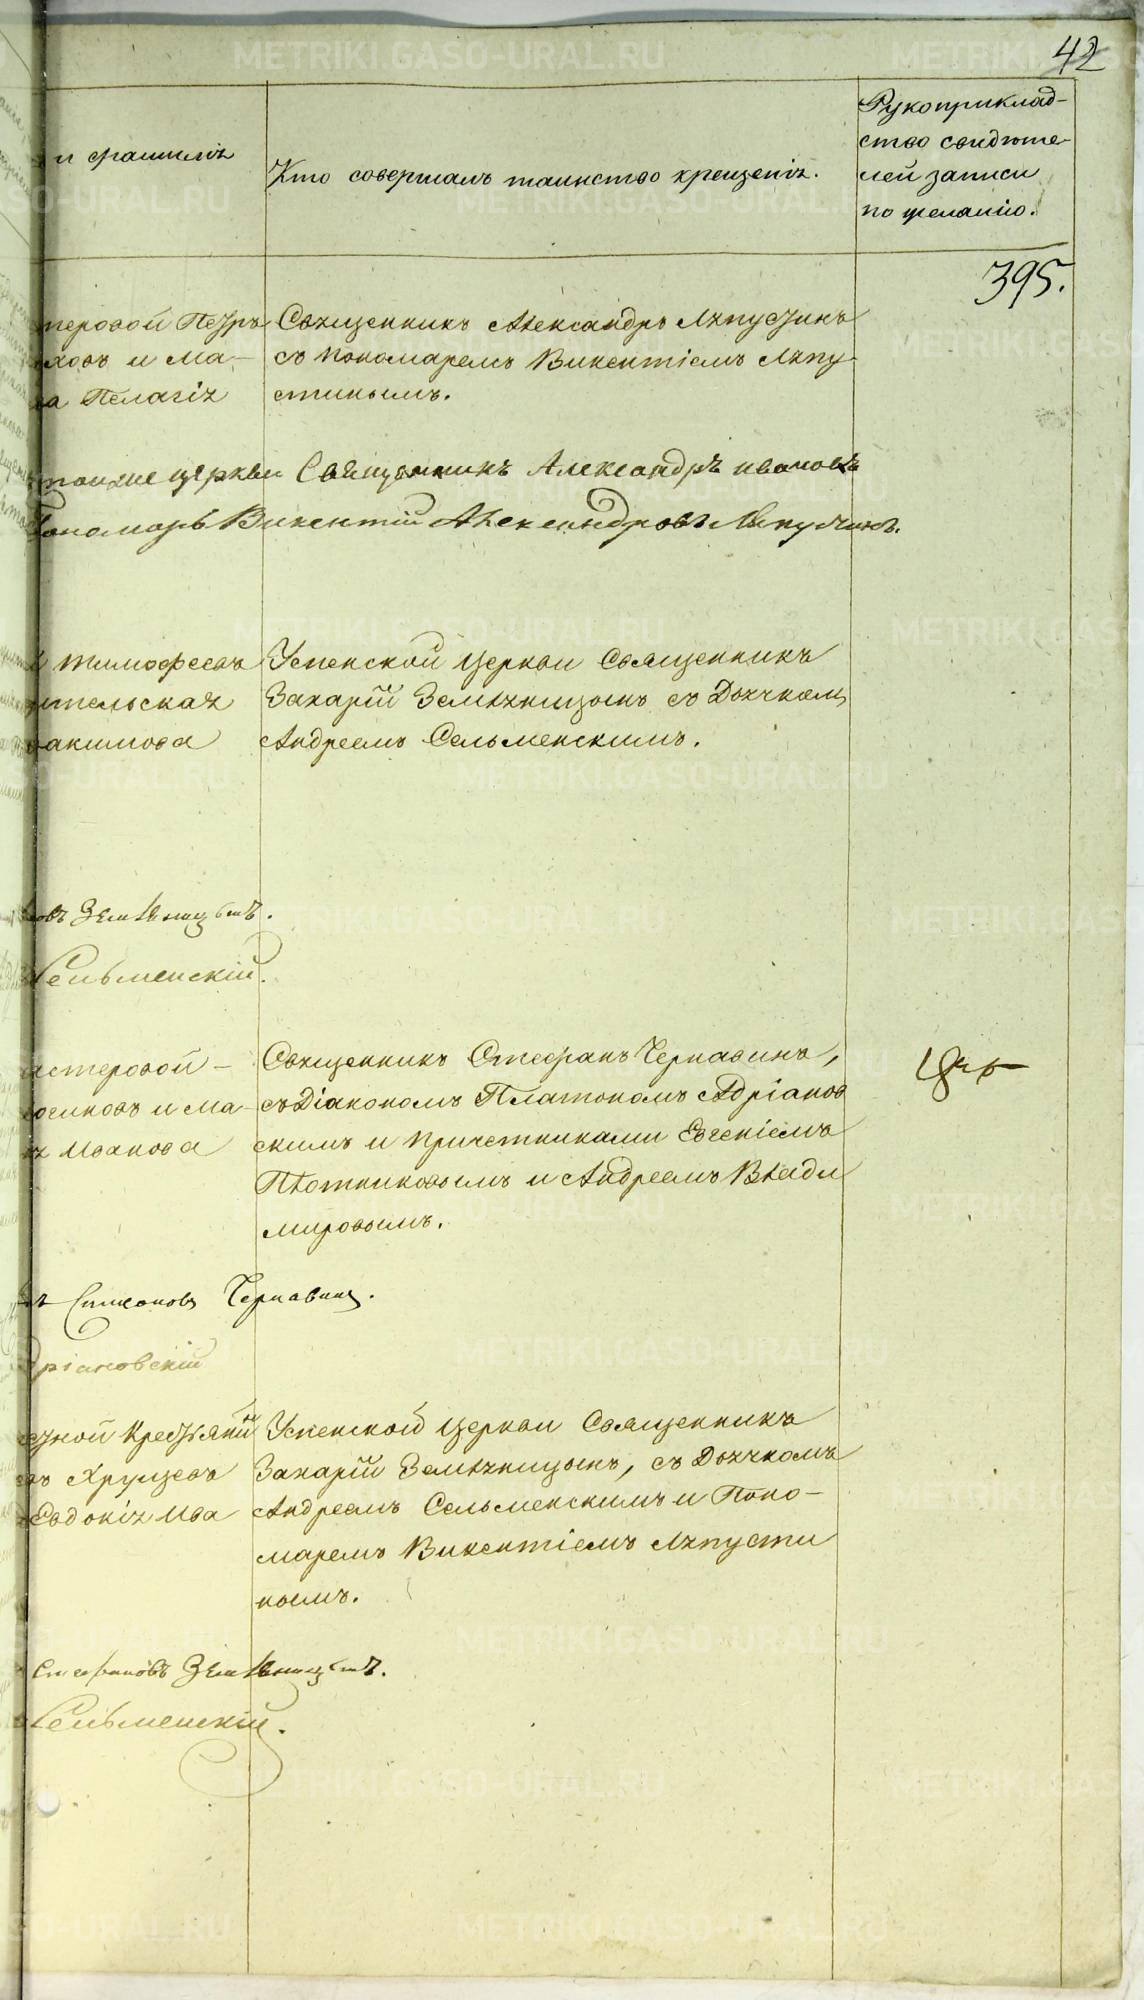 42
и фамилія
Кто совершалъ таинство крещенія.
Рукоприклад-
ство свидѣте-
лей записи
по желанію.
395.
теровой Петръ
ховъ и Ма-
ва Пелагія
Священникъ Александръ Ляпустинъ
съ пономаремъ Викентіемъ Ляпу-
стинымъ.
церкви Священникъ Александръ Ивановъ
Пономарь Викентій Александровъ Ляпустинъ.
Тимофеевъ
ительская
акимова
Успенской церкви Священникъ
Захарій Земляницынъ съ Дьячкомъ
Андреемъ Сельменскимъ.
овъ Земляницынъ.
Сельменскій.
астеровой -
и Ма-
Иванова
Священникъ Стефанъ Чернавинъ,
съ Діакономъ Платономъ Адріанов
скимъ и причетниками Евгеніемъ
Плотниковымъ и Андреемъ Влади
мировымъ.
Симеоновъ Чернавинъ.
дріановскій
Крестьянинъ
въ Хрущевъ
Евдокія Ива
Успенской церкви Священникъ
Захарій Земляницынъ, съ Дьячкомъ
Андреемъ Сельменскимъ и Поно-
маремъ Викентіемъ Ляпусти
нымъ.
Стефановъ Земляницынъ.
Сельменскій.
METRIKI.GASO-URAL.RU